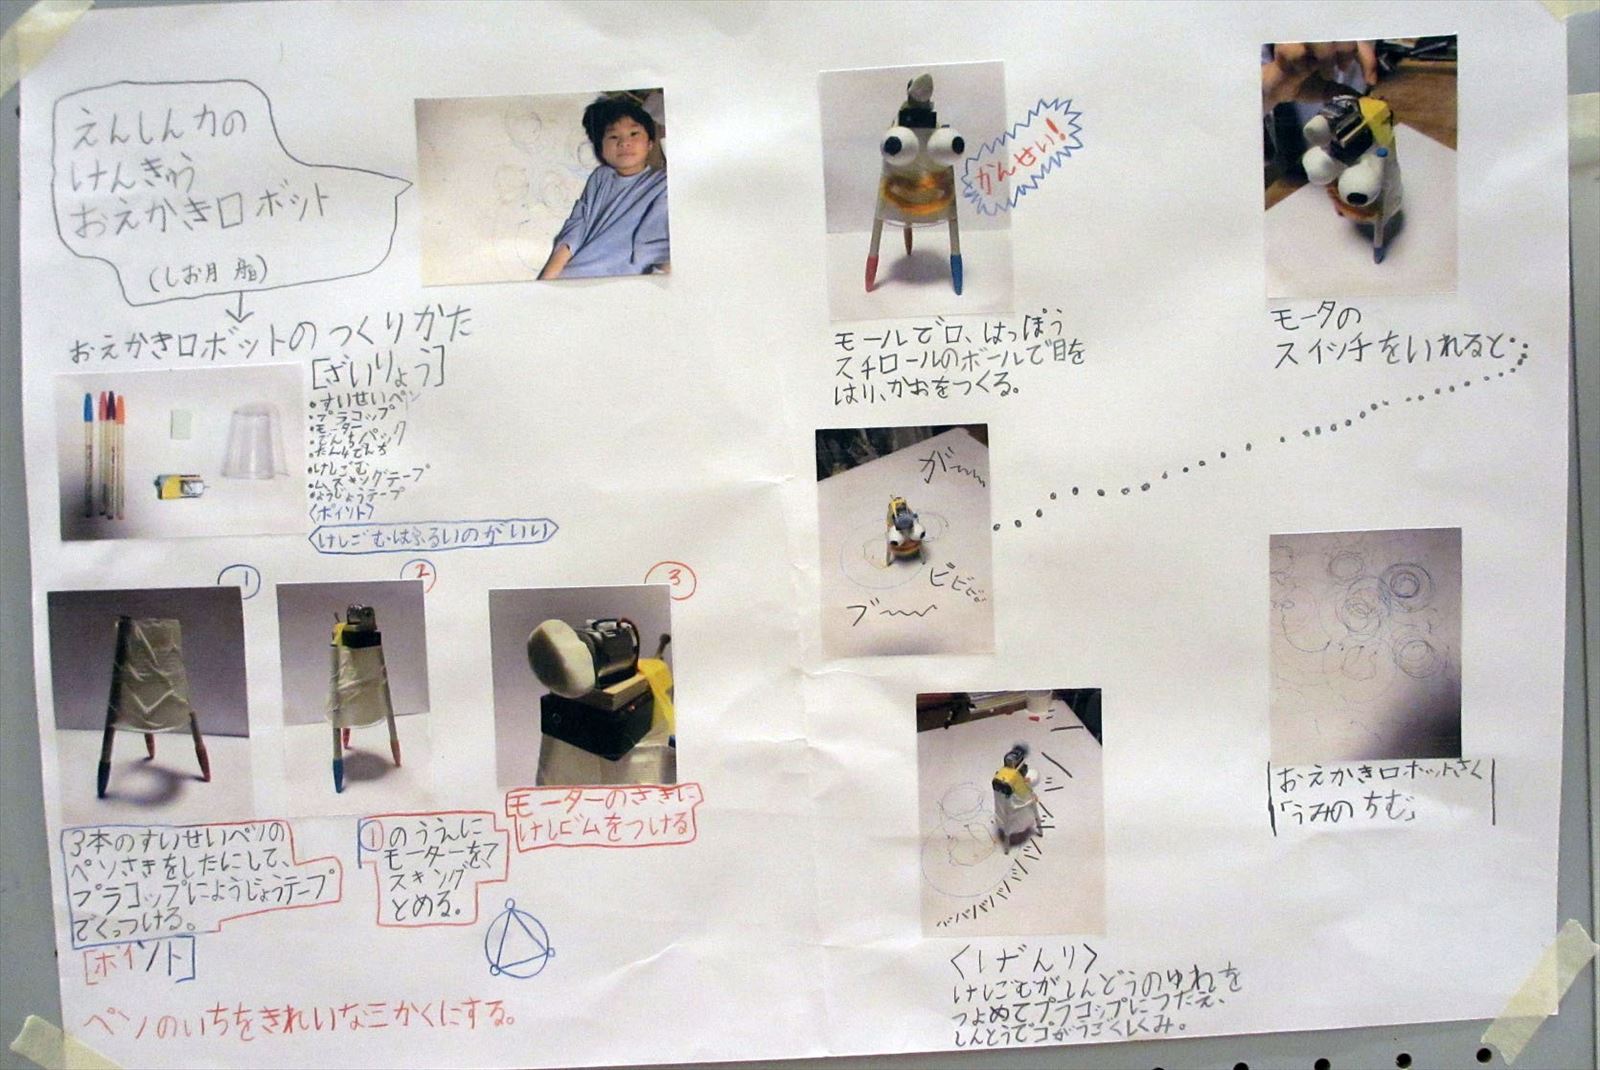 えんしん力の
けんきゅう
おえかきロボット
(しお月
おえかきロボットのつくりかた
[ざいりょう]
・すいせいペン
・プラコップ
・モーター
・でんちパック
・たん4でんち
・けしごむ
・ムスキングテープ
・ようじょうテープ
〈ポイント〉
けしごむはふるいのがいい
①
②
③
3本のすいせいペンの
ペンさきをしたにして、
プラコップにようじょうテープ
でくっつける。
[ポイント]
ペンのいちをきれいな三かくにする。
①のうえに
モーターを、マ
スキング
とめる。
モーターのさきに
けしゴムをつける
かんせい!
モールで口、はっぽう
スチロールのボールで目を
はり、かおをつくる。
モータの
スイッチをいれると・・
が〜〜
ビビビ
ブ〜〜
バババババババ
〈げんり〉
けしごむがしんどうのゆれを
つよめてプラコップにつたえ、
おえかきロボットさく
「うみのちむ」